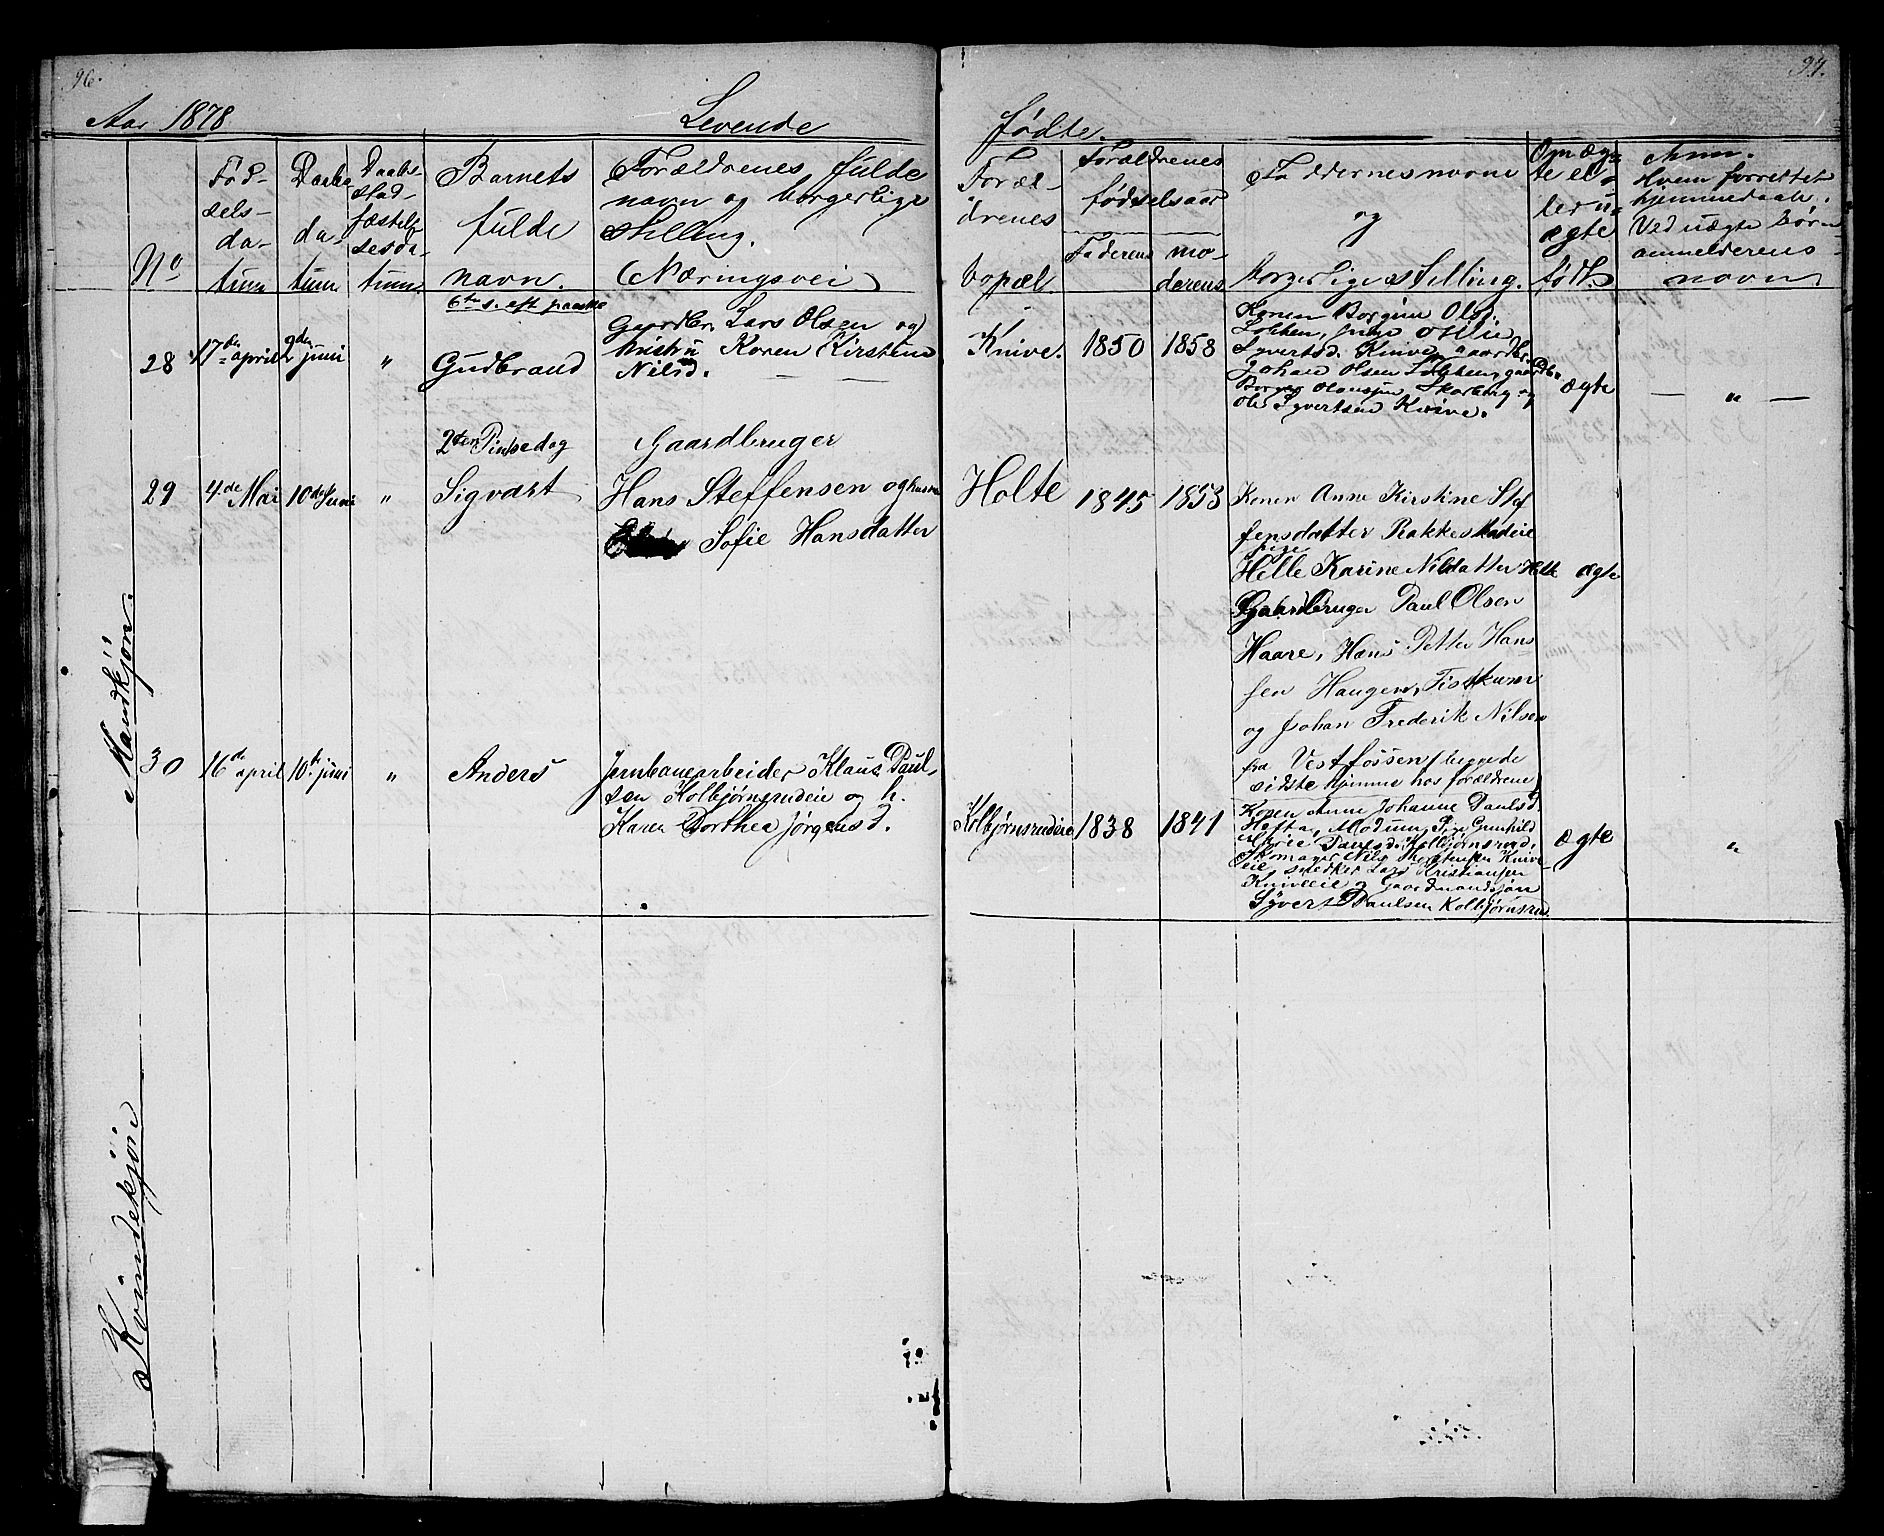 96.
97.
Aar 1878
Levende
fødte.
No
Fød-
sels-
da-
tum
Daabs
da-
tum
Daabs-
stad-
fæstel-
sesda-
tum.
Barnets
fulde
navn.
Forældrenes fulde
navn og borgerlige
stilling.
(Næringsvei)
Foræl-
drenes
bopæl.
Forældrenes
fødselsaar
Faderens
mo-
derens
Faddernes navne
og
borgerlige stilling.
Om æg-
te el-
ler u-
ægte
født.
Anm.
Hvem forrettet
hjemmedaab.
Ved uægte børn
anmelderens
navn
Mandkjøn.
6te s. eft paaske
28
17de april
9de juni
"
Gudbrand
Gaardbr. Lars Olsen og
hustru Karen Kirstine
Nilsd.
Knive.
1850
1858
Konen Borgine Olsd.
Lokken, pige Otilie
Syvertsd. Knive, gaardbr.
Johan Olsen Lokken, gaardbr.
Borger Olausen Skarberg og
Ole Syvertsen Knive.
ægte
— " —
2den Pinsedag
29
4de Mai
10de Juni
"
Sigvart
Gaardbruger
Hans Steffensen og hustru
Sofie Hansdatter
Holte
1845
1853
Konen Anne Kirstine Stef
fensdatter Rakkestadeie
pige
Helle Karine Nilsdatter Holte
Gaardbruger Paul Olsen
Haare, Hans Petter Hans
sen Haugen, Fiskum
og Johan Frederik Nilsen
fra Vestfossen (begge de
sidste hjemme hos forældrene)
ægte
30
16de april
10de juni
"
Anders
Jernbanearbeider Klaus Paul-
sen Kolbjørnsrudeie og h.
Karen Dorthea Jørgensd.
Kolbjørnsrudeie
1838
1841
Konen Anne Johanne Paulsd.
Hefta, Modum, Pige Gunhild
Marie Paulsd. Kolbjørnsrud,
Skomager Nils Thorstensen Knive
eie, snedker Lars Kristiansen
Kniveeie og Gaardmandssøn
Syvert Paulsen Kolbjørnsrud
ægte
"
Kvindekjøn